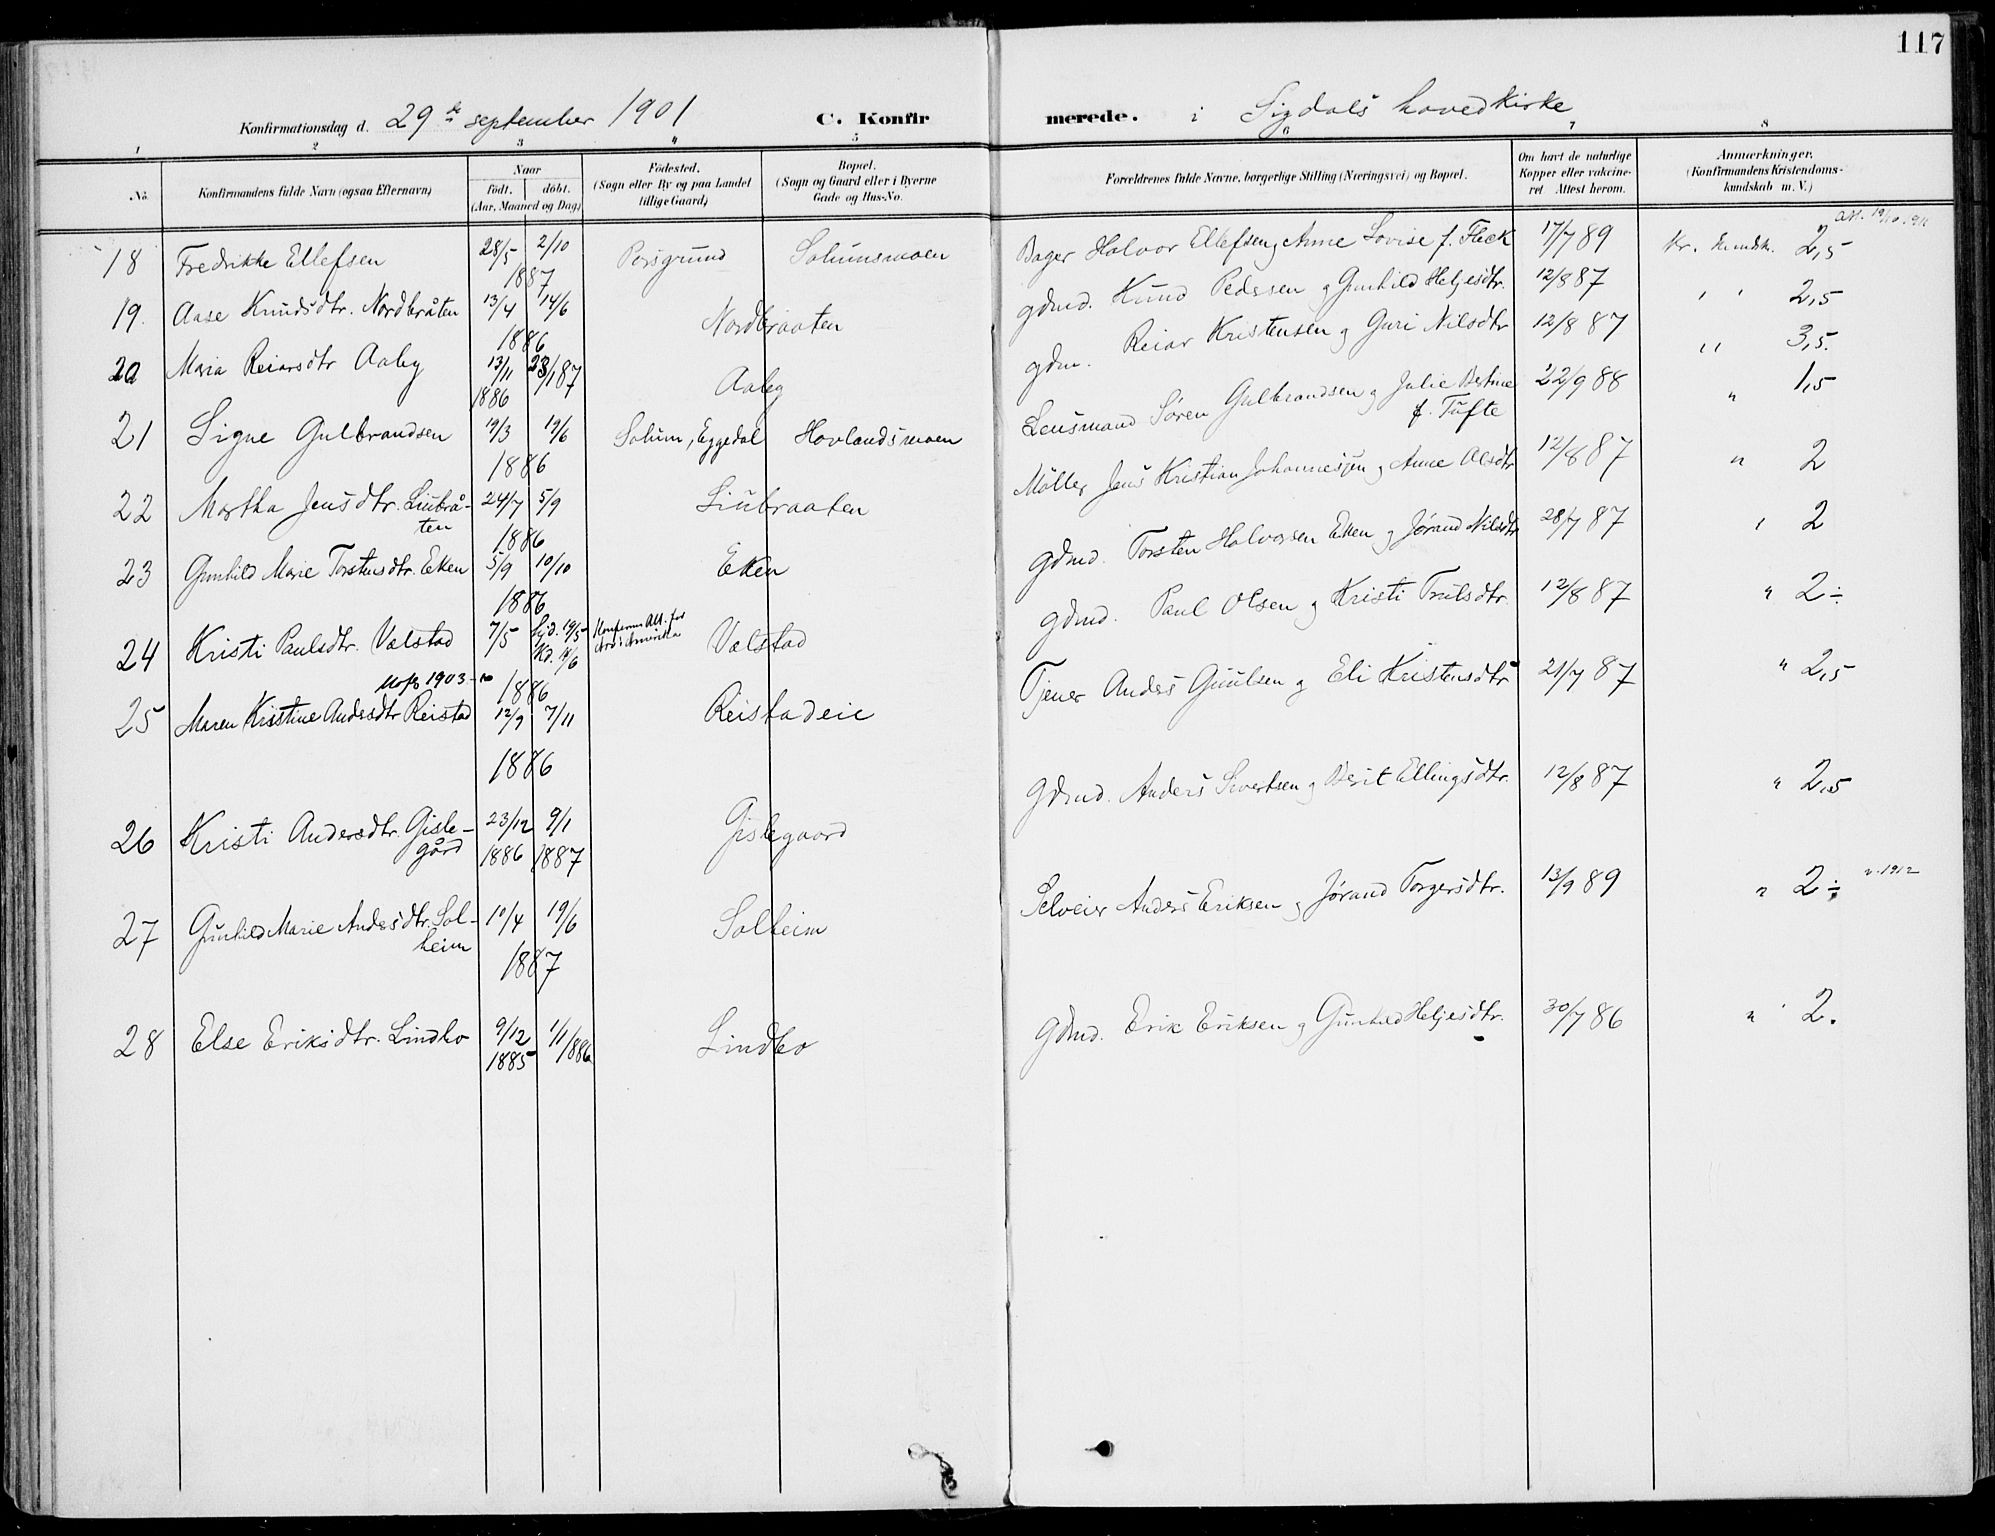 117
Konfirmationsdag d. 29de september 1901 C. Konfirmerede. i Sigdals hovedkirke
1 2 3 4 5 6 7 8
No. Konfirmandens fulde Navn (ogsaa Efternavn) Naar født. døbt. (Aar, Maaned og Dag) Fødested. (Sogn eller By og paa Landet tillige Gaard) Bopæl. (Sogn og Gaard eller i Byerne Gade og Hus-No. Forældrenes fulde Navne, borgerlige Stilling (Næringsvei) og Bopæl. Om havt de naturlige Kopper eller vakcineret Attest herom. Anmærkninger. (Konfirmandens Kristendomskundskab m. V.)
18 Fredrikke Ellefsen 28/5 2/10 1887 Porsgrund Solumsmoen Bager Halvor Ellefsen og Anne Lovise f. Fleck 17/7 89 Kr. kundsk. 2,5
19. Aase Knudsdtr. Nordbråten 13/4 14/6 1886 Nordbraaten gdmd. Knud Pedersen og Gunhild Heljesdtr. 12/8 87 " 2,5
20 Maria Reiarsdtr Aaby 13/11 1886 23/1 87 Aaby gdm. Reiar Kristensen og Guri Nilsdtr 12/8 87 " 3,5.
21 Signe Gulbrandsen 19/3 19/6 1886 Solum, Eggedal Hovlandsmoen Lensmand Søren Gulbrandsen og Julie Bertine f. Tufte 22/9 88 " 1,5
22 Martha Jensdtr. Liubråten 24/7 5/9 1886 Liubraaten Møller Jens Kristian Johannesen og Anne Olsdtr 12/8 87 " 2
23 Gunhild Marie Torstensdtr. Eken 5/9 10/10 1886 Eken gdmd. Torsten Halvorsen Eken og Jørand Nilsdtr 28/7 87 " 2
24 Kristi Paulsdtr. Valstad 7/5 Hjd. 19/5 Kd. 14/6 1886 Valstad gdmd. Paul Olsen og Kristi Trulsdtr. 12/8 87 " 2÷
25 Maren Kristine Andersdtr Reistad 12/9 7/11 1886 Reistadeie Tjener Anders Guulsen og Eli Kristensdtr 21/7 87 " 2,5
26 Kristi Andersdtr. Gislegård 23/12 1886 9/1 1887 Gislegaard Gdmd. Anders Sivertsen og Berit Ellingsdtr. 12/8 87 " 2,5
27 Gunhild Marie Andersdtr. Solheim 10/4 19/6 1887 Solheim Selveier Anders Eriksen og Jørand Torgersdtr. 13/9 89 " 2÷ 1912
28 Else Eriksdtr. Lindbo 9/12 1885 1/1 1886 Lindbo Gdmd. Erik Eriksen og Gunhild Heljesdtr. 30/7 86 " 2.